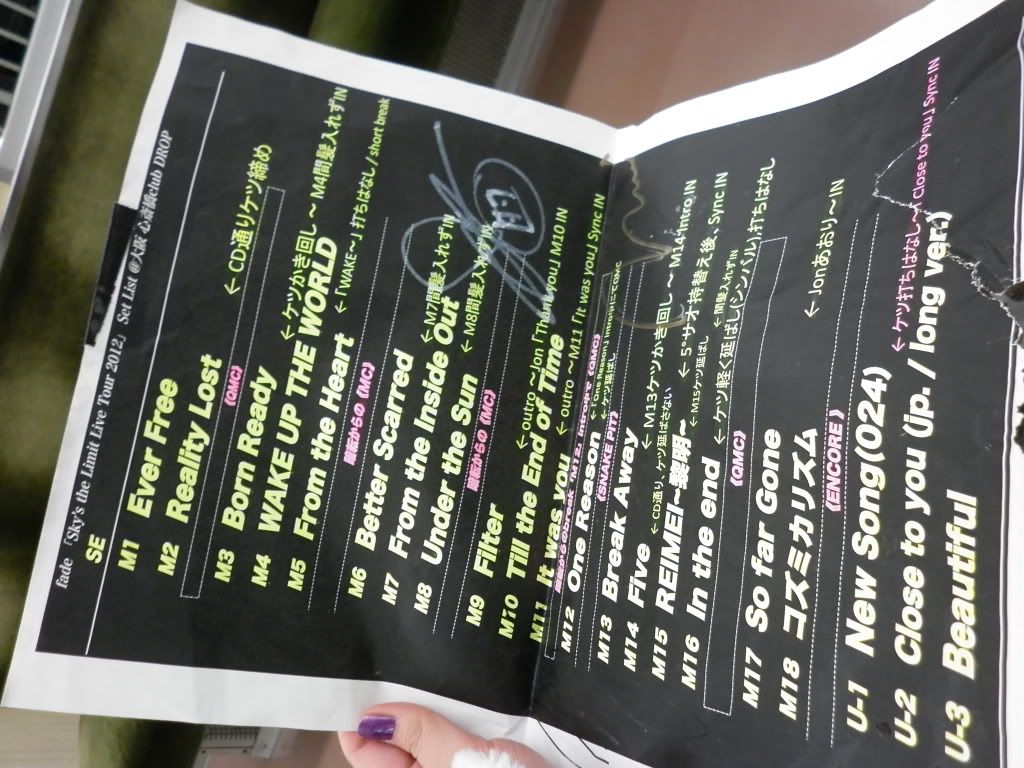 fade 「Sky's the Limit Live Tour 2012」 Set List @大阪 心斎橋club DROP
SE
M1 Ever Free
M2 Reality Lost ← CD通りケツ締め
《QMC》
M3 Born Ready
M4 WAKE UP THE WORLD ← ケツかき回し ~ M4間髪入れずIN
M5 From the Heart ← 「WAKE~」打ちはなし / short break
《MC》
M6 Better Scarred
M7 From the Inside Out ← M7間髪入れずIN
M8 Under the Sun ← M8間髪入れずIN
《MC》
M9 Filter
M10 Till the End of Time ← outro ~ Jon 「Thank you」 M10 IN
M11 It was you ← outro ~M11 「It was you」 Sync IN
M12 One Reason
《SNAKE PIT》
M13 Break Away
M14 Five ← M13ケツかき回し ~ M14 intro IN
M15 REIMEI~黎明~ ← 5"サオ持替え後、Sync IN
M16 In the end ← ケツ軽く延ばし(シンバル)打ちはなし
《QMC》
M17 So far Gone
M18 コズミカリズム ← Jonあおり~IN
《ENCORE》
U-1 New Song(024)
U-2 Close to you (jp. / long ver.) ← ケツ打ちはなし~「Close to you」 Sync IN
U-3 Beautiful